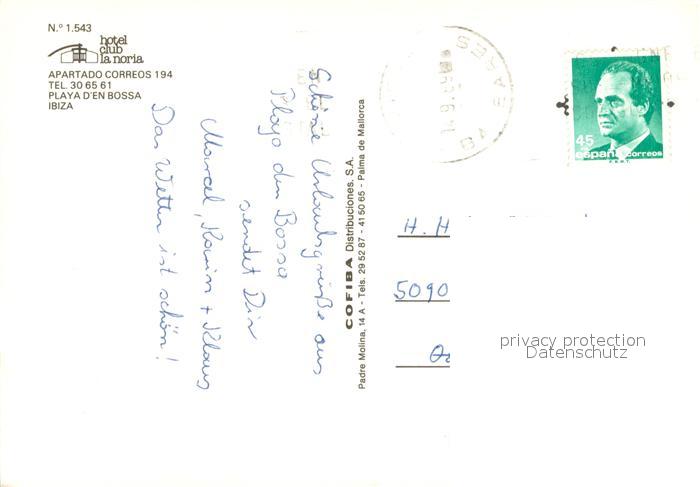 N.º 1.543
hotel
club
la noria
APARTADO CORREOS 194
TEL. 30 65 61
PLAYA D'EN BOSSA
IBIZA
Schöne Urlaubsgrüße aus
Playo den Bossa
sendet Dir
Marcel, Karin + Klaus
Das Wetter ist schön!
COFIBA Distribuciones, S.A.
Padre Molina, 14 A - Tels. 29 52 87 - 41 50 65 - Palma de Mallorca
45
españa correos
F.N.M.T.
H. H
5090
privacy protection
Datenschutz